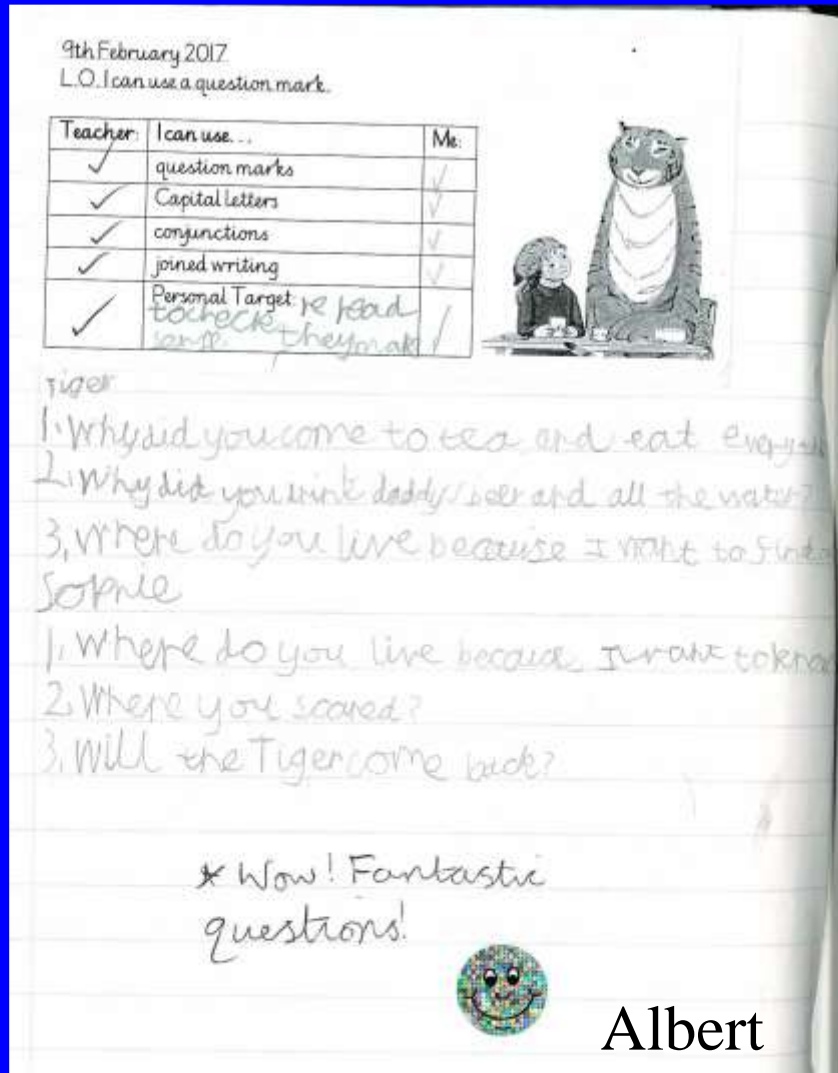 9th February 2017
L.O. I can use a question mark.
Teacher: I can use... Me:
✓ question marks ✓
✓ Capital Letters ✓
✓ conjunctions ✓
✓ joined writing ✓
Personal Target: re read
✓ to check they mak ✓
sense.
Tiger
1. Why did you come to tea and eat
2. Why did you drink daddys beer and all the water?
3, Where do you live because I want to find
Sophie
1, Where do you live I want to know
2, Where you scared?
3, Will the Tiger come back?
* Wow! Fantastic
questions!
Albert